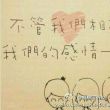 不管我們相
我們的感情一